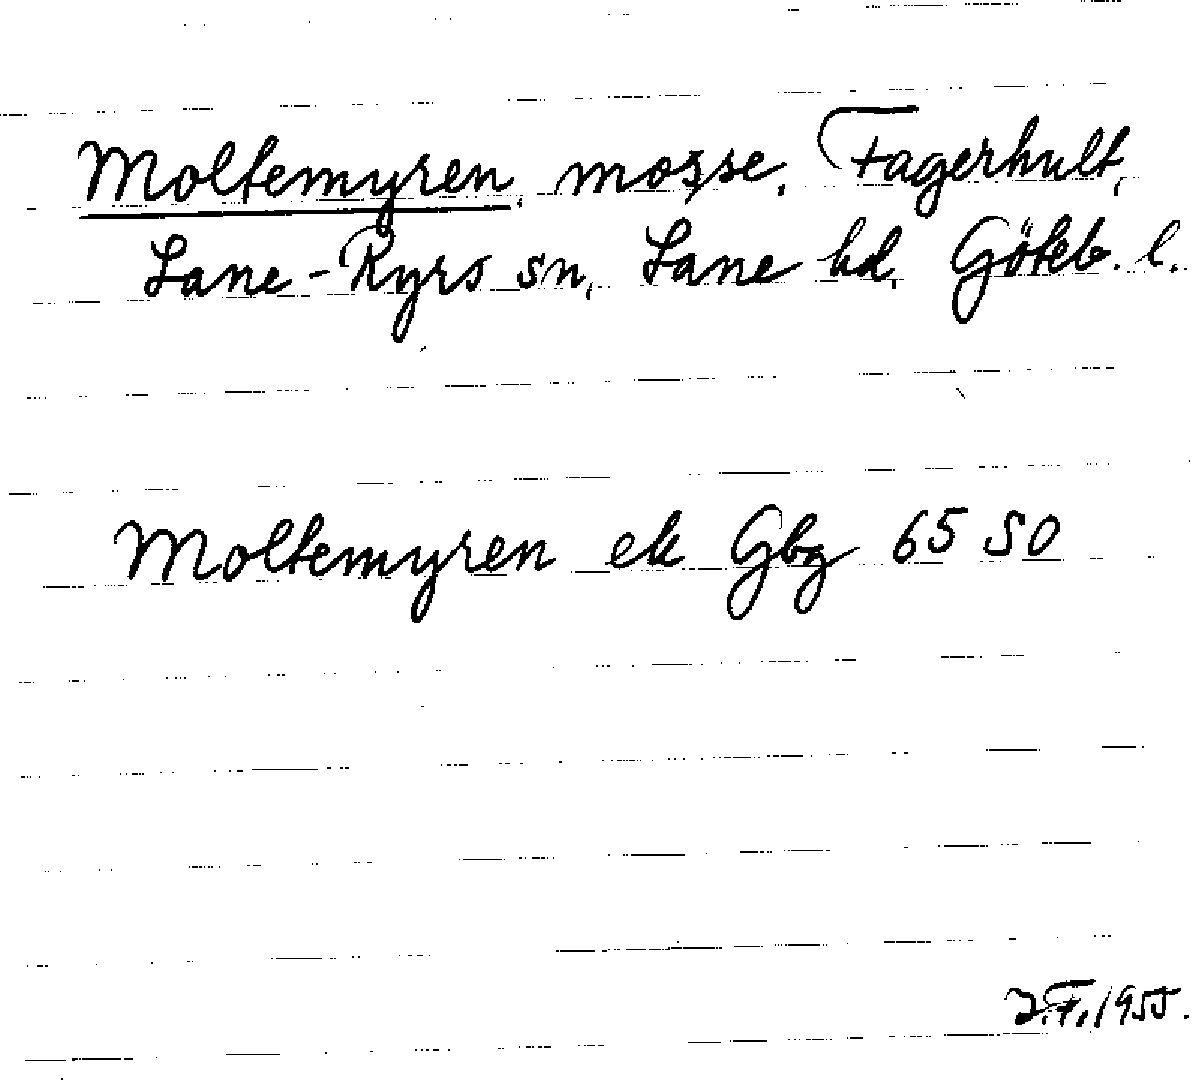 Moltemyren, mosse, Fagerhult,
Lane-Ryrs sn, Lane hd, Göteb. l.
Moltemyren ek Gbg 65 SO
J.F. 1955.